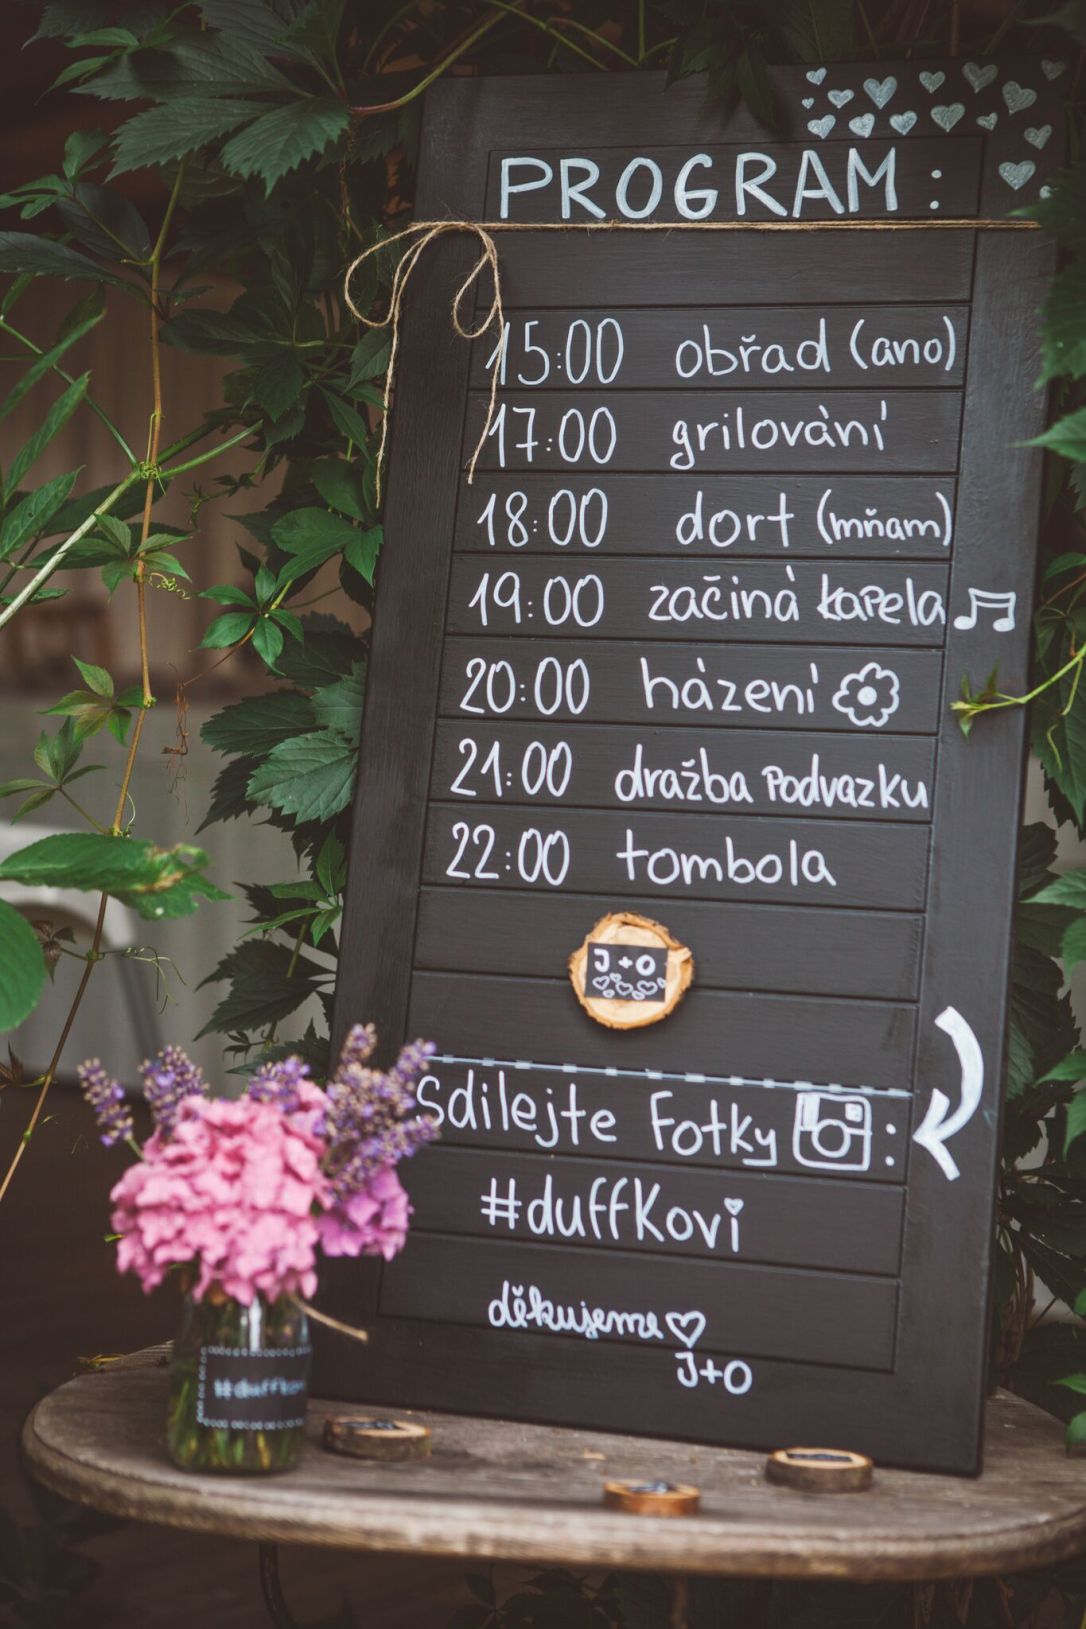 PROGRAM:
15:00 obřad (ano)
17:00 grilování
18:00 dort (mňam)
19:00 začíná kapela
20:00 házení
21:00 dražba podvazku
22:00 tombola
J+O
Sdílejte Fotky :
#duffkovi
děkujeme
J+O
#duffkov